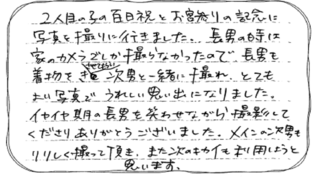 2人目の子の百日祝とお宮参りの記念に
写真を撮りに行きました。長男の時は
家のカメラでしか撮らなかったので長男も
着物を着させてもらい次男と一緒に撮れ、とても
よい写真でうれしい思い出になりました。
イヤイヤ期の長男を笑わせながら撮影して
くださりありがとうございました。メインの次男も
りりしく撮って頂き、また次のキカイも利用しようと
思います。